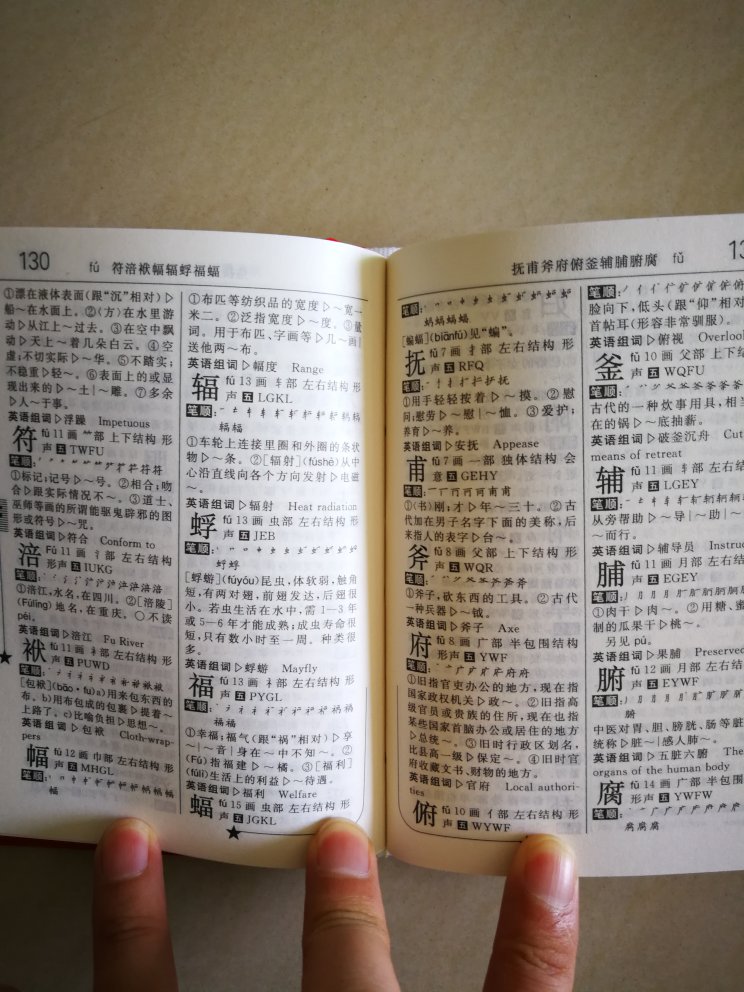 130 fú 符涪袱幅辐蜉福蝠
①漂在液体表面(跟“沉”相对)▷
~在水面上。②(方)在水里游
动▷从江上~过去。③在空中飘
动▷天上~着几朵白云。④空
虚;不切实际▷~华。⑤不踏实;
不稳重▷轻~。⑥表面上的或显
现出来的▷~土|~雕。⑦多余
▷人~于事。
英语组词▷浮躁 Impetuous
符 fú 11画 ⺮部 上下结构 形
声 五 TWFU
笔顺:
①标记;记号▷~号。②相合;吻
合▷跟实际情况不~。③道士、
巫师等画的所谓能驱鬼辟邪的图
形或符号▷~咒。
英语组词▷符合 Conform to
涪 Fú 11画 氵部 左右结构
形声 五 IUKG
笔顺:
①涪江,水名,在四川。②[涪陵]
(Fúlíng)地名,在重庆。○不读
péi。
英语组词▷涪江 Fu River
袱 fú 11画 衤部 左右结构 形
声 五 PUWD
笔顺:
[包袱](bāo·fu)a)用来包东西的
布。b)用布包成的包裹▷提着~
上路了。c)比喻负担▷思想~。
英语组词▷包袱 Cloth-wrap-
pers
幅 fú 12画 巾部 左右结构 形
声 五 MHGL
笔顺:
幅
①布匹等纺织品的宽度▷~宽一
米二。②泛指宽度▷~度。③量
词。用于布匹、字画等▷几~画|
送他两~布。
英语组词▷幅度 Range
辐 fú 13画 车部 左右结构 形
声 五 LGKL
笔顺:
辐辐
①车轮上连接里圈和外圈的条状
物▷~条。②[辐射](fúshè)从中
心沿直线向各个方向发射▷电磁
~。
英语组词▷辐射 Heat radiation
蜉 fú 13画 虫部 左右结构 形
声 五 JEB
笔顺:
蜉蜉
[蜉蝣](fúyóu)昆虫,体软弱,触角
短,有两对翅,前翅发达,后翅很
小。若虫生活在水中,需1—3年
或5—6年才能成熟;成虫寿命很
短,只有数小时至一周。种类很
多。
英语组词▷蜉蝣 Mayfly
福 fú 13画 礻部 左右结构 形
声 五 PYGL
笔顺:
福福
①幸福;福气(跟“祸”相对)▷享
~|~音|身在~中不知~。②
(Fú)指福建▷~橘。③[福利]
(fúlì)生活上的利益▷~待遇。
英语组词▷福利 Welfare
蝠 fú 15画 虫部 左右结构 形
声 五 JGKL
抚甫斧府俯釜辅脯腑腐 fǔ
笔顺:
蝠蝠蝠蝠
[蝙蝠](biānfú)见“蝙”。
抚 fǔ 7画 扌部 左右结构 形
声 五 RFQ
笔顺:
①用手轻轻按着▷~摸。②慰
问;慰劳▷~慰|~恤。③爱护;
养育▷~养。
英语组词▷安抚 Appease
甫 fǔ 7画 一部 独体结构 会
意 五 GEHY
笔顺:
①(书)刚;才▷年~三十。②古
代加在男子名字下面的美称,后
来指人的表字▷台~。
斧 fǔ 8画 父部 上下结构 形
声 五 WQR
笔顺:
①斧子,砍东西的工具。②古代
一种兵器▷~钺。
英语组词▷斧子 Axe
府 fǔ 8画 广部 半包围结构
形声 五 YWF
笔顺:
①旧指官吏办公的地方,现在指
国家政权机关▷政~。②旧指高
级官员或贵族的住所,现在也指
某些国家首脑办公或居住的地方
▷总统~。③旧时行政区划名,
比县高一级▷保定~。④旧时官
府收藏文书、财物的地方。
英语组词▷官府 Local authori-
ties
俯 fǔ 10画 亻部 左右结构 形
声 五 WYWF
笔顺:
脸向下,低头(跟“仰”相对
首帖耳(形容非常驯服)。
英语组词▷俯视
釜 fǔ 10画 父部 上下结
声 五 WQFU
笔顺:
古代的一种炊事用具,相当
在的锅▷~底抽薪。
英语组词▷破釜沉舟 Cut
means of retreat
辅 fǔ 11画 车部 左右结
声 五 LGEY
笔顺:
从旁帮助▷~导|~助|~
~而行。
英语组词▷辅导员
脯 fǔ 11画 月部 左右结
声 五 EGEY
笔顺:
①肉干▷肉~。②用糖、蜜
制的瓜果干▷桃~。
另见 pú。
英语组词▷果脯 Preserved
腑 fǔ 12画 月部 左右结
声 五 EYWF
笔顺:
腑
中医对胃、胆、膀胱、肠等脏
统称▷脏~|感人肺~。
英语组词▷五脏六腑 The
organs of the human body
腐 fǔ 14画 广部 半包围
形声 五 YWFW
笔顺:
腐腐腐